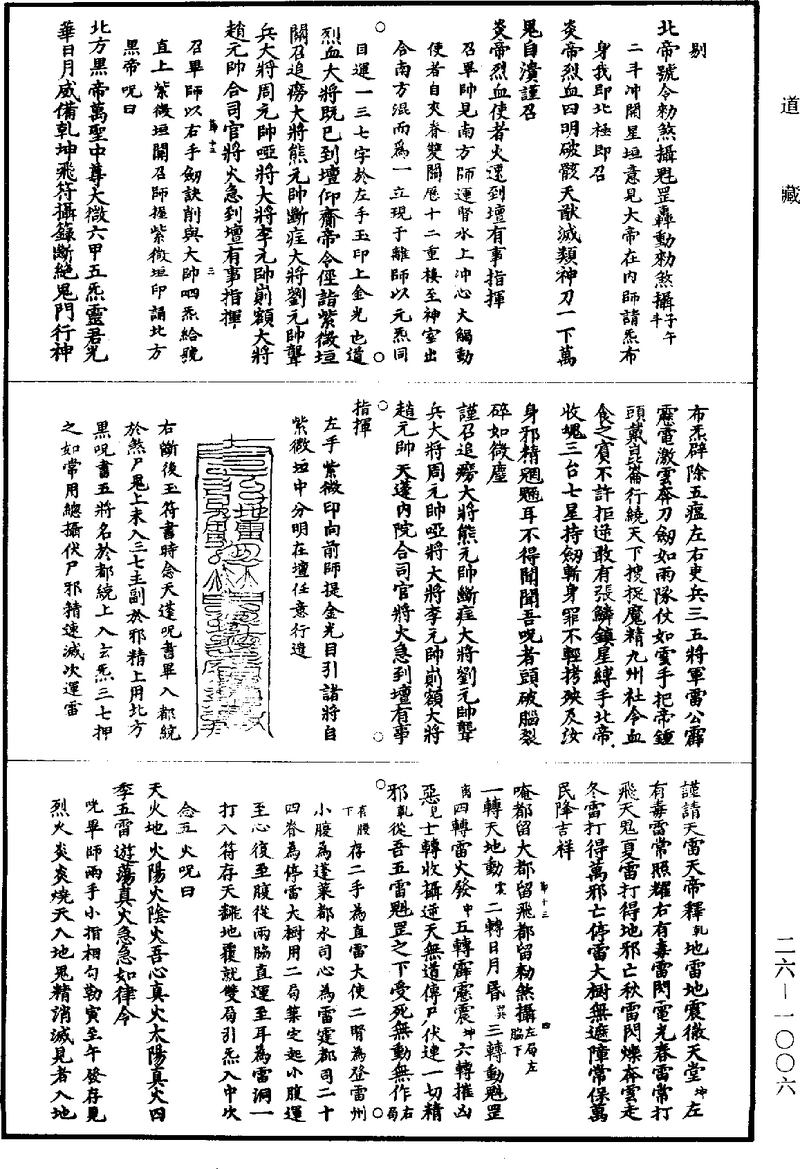 道藏
剔
北帝號令勑煞攝魁罡轟動勑煞攝子午斗
二斗沖開星垣意見大帝在內師請炁布
身我即北極即召
炎帝烈血四明破骸天猷滅類神刀一下萬
鬼自潰謹召
炎帝烈血使者火速到壇有事指揮
召畢師見南方師運腎水上沖心火觸動
使者自夾脊雙關歷十二重樓至神室出
合南方混而為一立現于離師以元炁同
目運一三七字於左手玉印上金光也道
烈血大將既已到壇仰齎帝令徑詣紫微垣
關召追癆大將熊元帥斷痓大將劉元帥聾
兵大將周元帥啞將大將李元帥崩額大將
趙元帥合司官將火急到壇有事指揮
召畢師以右手劍訣削與大帥呬炁給號
直上紫微垣開召師握紫微垣印誦北方
黑帝呪曰
北方黑帝萬聖中尊大微六甲五炁靈君光
華日月威備乾坤飛符攝錄斷絕鬼門行神
布炁辟除五瘟左右吏兵三五將軍雷公霹
靂電激雲奔刀劍如雨隊仗如雲手把帝鍾
頭戴崑崙行繞天下搜捉魔精九州社令血
食之賓不許拒逆敢有張鱗鎮星縛手北帝
收魂三台七星持劍斬身罪不輕拷殃及汝
身邪精魍魎耳不得聞聞吾呪者頭破腦裂
碎如微塵
謹召追癆大將熊元帥斷痓大將劉元帥聾
兵大將周元帥啞將大將李元帥崩額大將
趙元帥天蓬內院合司官將火急到壇有事
指揮
左手紫微印向前師提金光目引諸將自
紫微垣中分明在壇任意行遣
右斷後玉符書時念天蓬呪書畢入都統
於煞尸鬼上末入三七主副於邪精上用北方
黑呪書五將名於都統上入玄炁三七押
之如常用總攝伏尸邪精速滅次運雷
謹請天雷天帝釋乾地雷地震徹天堂坤左
有毒雷常照耀右有毒雷閃電光春雷常打
飛天鬼夏雷打得地邪亡秋雷閃爍奔雲走
冬雷打得萬邪亡停雷大樹無遮障常保萬
民降吉祥
唵都留大都留飛都留勑煞攝左局左脇下
一轉天地動寅二轉日月昏巽三轉動魁罡
离四轉雷火發中五轉霹靂震坤六轉摧凶
惡兌七轉收攝逆天無道傳尸伏連一切精
邪乾從吾五雷魁罡之下受死無動無作右局
右腹下存二手為直雷大使二腎為登雷州
小腹為蓬萊都水司心為雷霆都司二十
四脊為停雷大樹用二局築定起小腹運
至心復至腹從兩脇直運至耳為雷洞一
打入符存天翻地覆就雙局引炁入中次
念五火呪曰
天火地火陽火陰火吾心真火太陽真火四
季五雷遊蕩真火急急如律令
呪畢師兩手小指相勾勒寅至午發存見
烈火炎炎燒天入地鬼精消滅見者入地
二六—一〇〇六